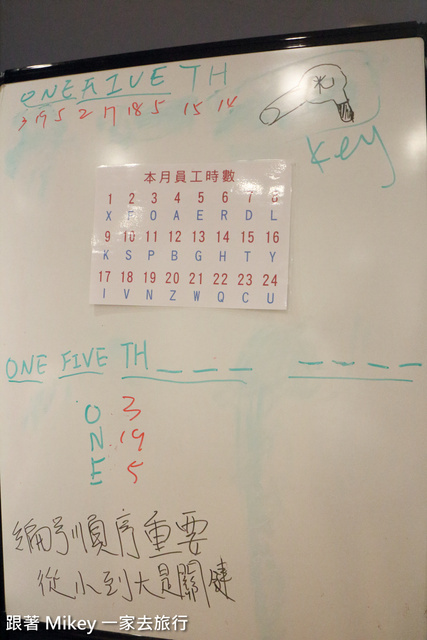 ONE FIVE TH
3 19 5 2 17 18 5 15 14
Key
本月員工時數
1 2 3 4 5 6 7 8
X F O A E R D L
9 10 11 12 13 14 15 16
K S P B G H T Y
17 18 19 20 21 22 23 24
I V N Z W Q C U
ONE FIVE TH_ _ _ _ _ _ _ _
O 3
N 19
E 5
編列順序重要
從小到大是關鍵
跟著 Mikey 一家去旅行